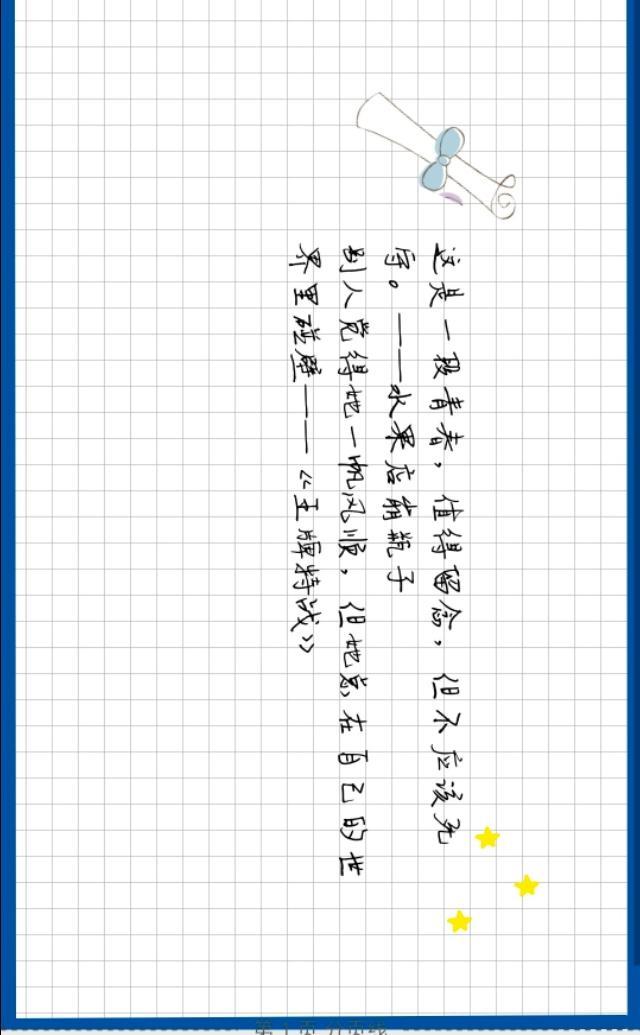 这是一段青春，值得留念，但不应该死
守。——水果店前瓶子
别人觉得她一帆风顺，但她总在自己的世
界里碰壁——《王牌特战》